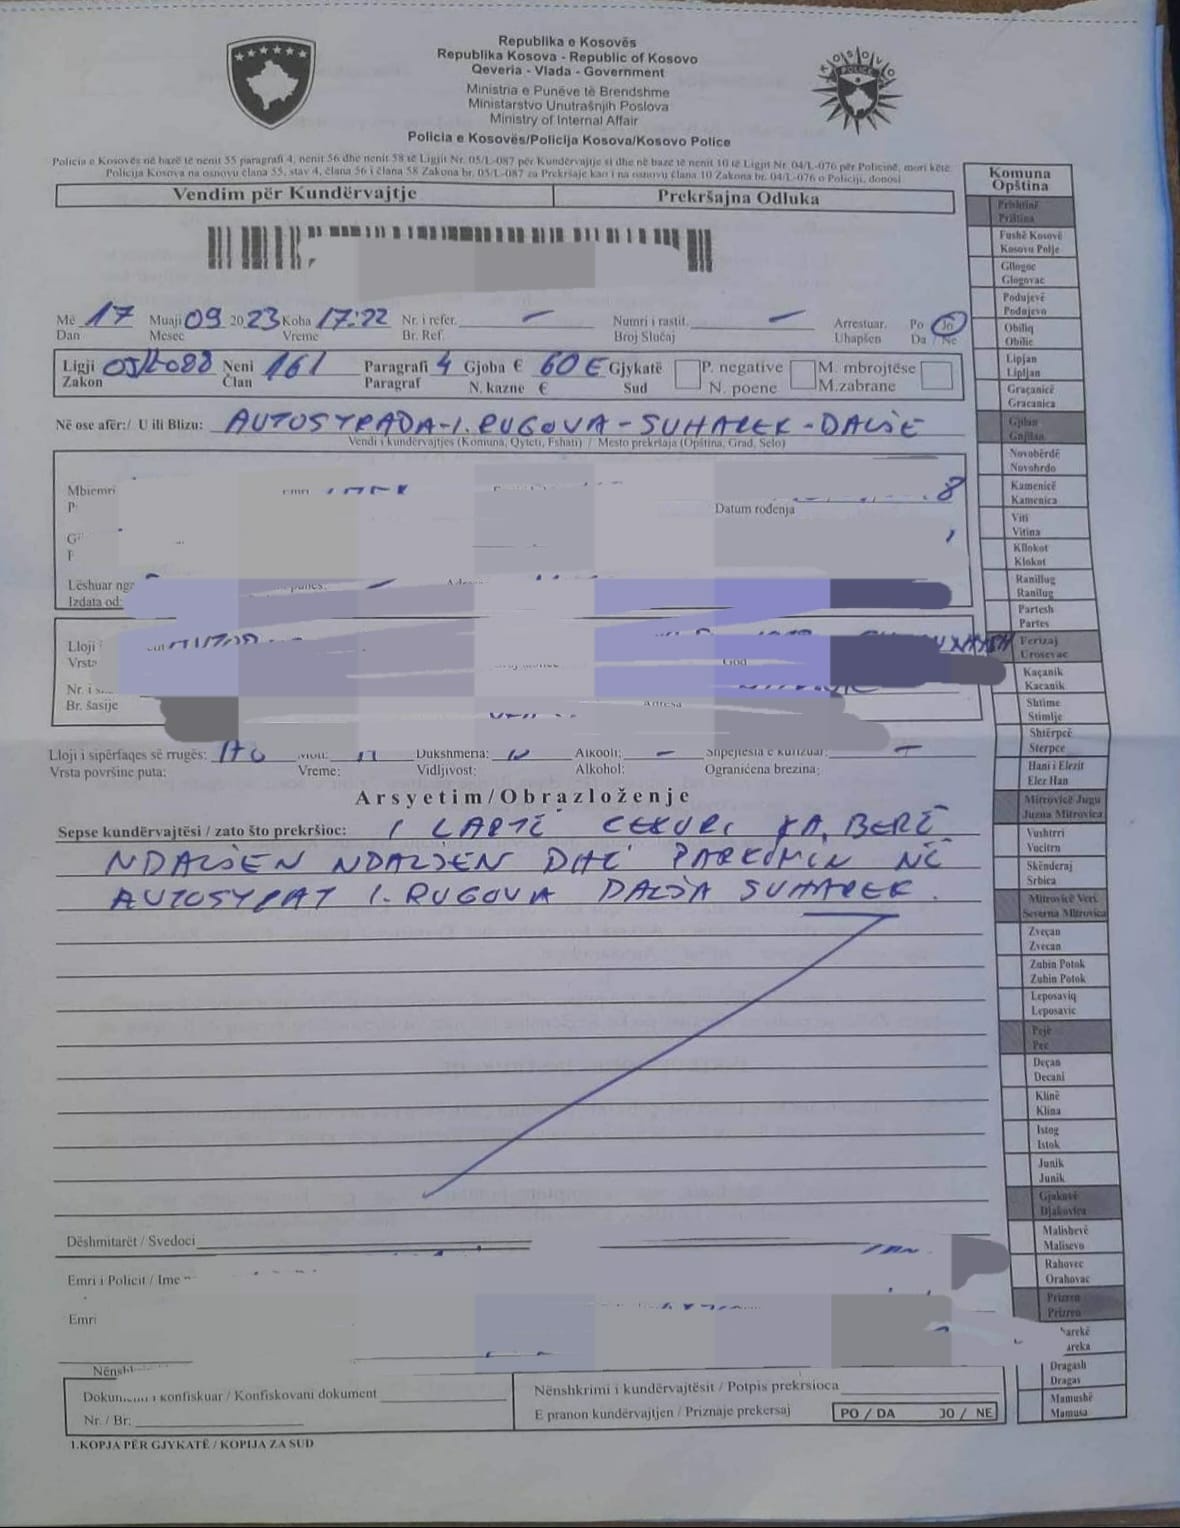 Republika e Kosovës
Republika Kosova - Republic of Kosovo
Qeveria - Vlada - Government
Ministria e Punëve të Brendshme
Ministarstvo Unutrašnjih Poslova
Ministry of Internal Affair
Policia e Kosovës/Policija Kosova/Kosovo Police
Policia e Kosovës në bazë të nenit 55 paragrafi 4, nenit 56 dhe nenit 58 të Ligjit Nr. 05/L-087 për Kundërvajtje si dhe në bazë të nenit 10 të Ligjit Nr. 04/L-076 për Policinë, mori këtë
Policija Kosova na osnovu člana 55, stav 4, člana 56 i člana 58 Zakona br. 05/L-087 za Prekršaje kao i na osnovu člana 10 Zakona br. 04/L-076 o Policiji, donosi
Vendim për Kundërvajtje Prekršajna Odluka
Më 17 Muaji 09 2023 Koha 17:22 Nr. i refer. - Numri i rastit. - Arrestuar. Po Jo
Dan Mesec Vreme Br. Ref. Broj Slučaj Uhapšen Da / Ne
Ligji 05/L-088 Neni 161 Paragrafi 4 Gjoba € 60 € Gjykatë P. negative M. mbrojtëse
Zakon Član Paragraf N. kazne € Sud N. poene M.zabrane
Në ose afër:/ U ili Blizu: AUTOSTRADA-I.RUGOVA-SUHAREK-DALJE
Vendi i kundërvajtjes (Komuna, Qyteti, Fshati) / Mesto prekršaja (Opština, Grad, Selo)
Mbiemri
Datum rođenja
Lëshuar nga
Izdata od:
Lloji
Vrsta
Nr. i
Br. šasije
Lloji i sipërfaqes së rrugës: Dukshmëria: Alkooli: - Shpejtësia e kufizuar: -
Vrsta površine puta: Vreme: Vidljivost: Alkohol: Ograničena brezina:
Arsyetim/Obrazloženje
Sepse kundërvajtësi / zato što prekršioc: I LARTË CEKURI KA BERË
NDALJEN NDALJEN DHE PARKIMIN NË
AUTOSTRAT I.RUGOVA DALJA SUHAREK.
Dëshmitarët / Svedoci
Emri i Policit / Ime
Emri
Dokumenti i konfiskuar / Konfiskovani dokument
Nr. / Br:
Nënshkrimi i kundërvajtësit / Potpis prekrsioca
E pranon kundërvajtjen / Priznaje prekersaj PO / DA JO / NE
1.KOPJA PËR GJYKATË / KOPIJA ZA SUD
Komuna
Opština
Prishtinë
Priština
Fushë Kosovë
Kosovo Polje
Gllogoc
Glogovac
Podujevë
Podujevo
Obiliq
Obilic
Lipjan
Lipljan
Graçanicë
Gracanica
Gjilan
Gnjilan
Novobërdë
Novobrdo
Kamenicë
Kamenica
Viti
Vitina
Kllokot
Klokot
Ranillug
Ranilug
Partesh
Partes
Ferizaj
Urosevac
Kaçanik
Kacanik
Shtime
Stimlje
Shtërpcë
Sterpce
Hani i Elezit
Elez Han
Mitrovicë Jugu
Juzna Mitrovica
Vushtrri
Vucitrn
Skënderaj
Srbica
Mitrovicë Veri
Severna Mitrovica
Zveçan
Zvecan
Zubin Potok
Zubin Potok
Leposaviq
Leposavic
Pejë
Pec
Deçan
Decani
Klinë
Klina
Istog
Istok
Junik
Junik
Gjakovë
Djakovica
Malishevë
Malisevo
Rahovec
Orahovac
Prizren
Prizren
Dragash
Dragas
Mamushë
Mamusa